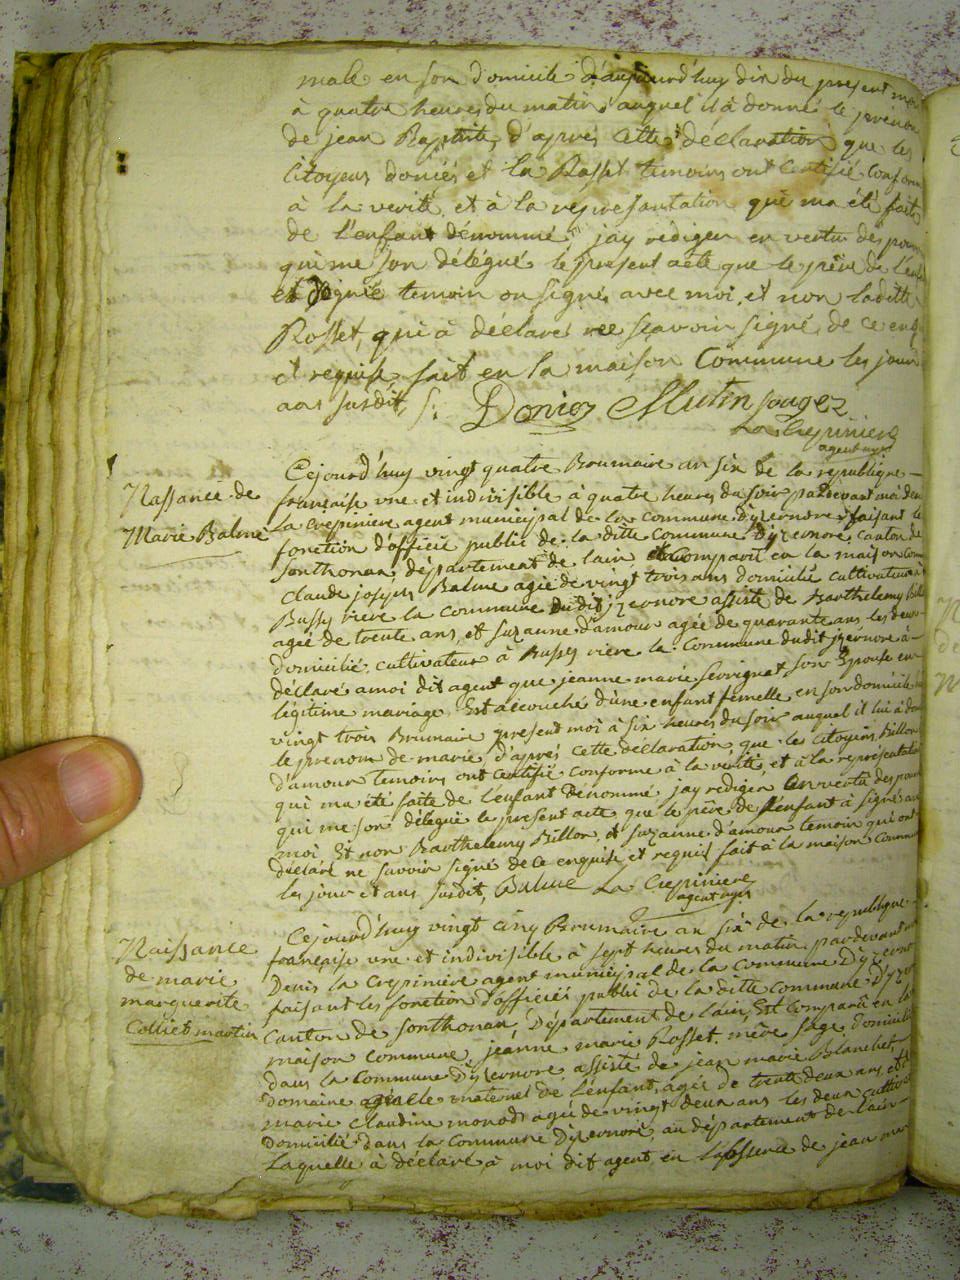 male en son domicile d'aujourd'huy dix du present moi
à quatre heures du matin auquel il à donné le prénom
de jean Baptiste, d'aprés cette déclaration que les
Citoyens et la Rosset temoins ont Certifié Conforme
à la verité et à la representation qui ma été faite
de l'enfant dénommé, jay rédiger en vertu des pouv
qui me son délegués le présent acte que le père de l'enfa
et temoin on signés avec moi, et non laditte
Rosset, qui à déclarés nee sçavoir signé de ce enq
et requise, fait en la maison Commune les jour
ans susdit,
La Crepiniere
agent mpl
Naissance de
Marie Balme
Cejourd'huy vingt quatre Brumaire an six de la republique
française une et indivisible à quatre heures du soir pardevant moi deni
La Crepiniere agent municipal de la commune d'yzernore faisant le
fonction d'officié public de la ditte Commune d'yzernore, canton de
Sonthonax, département de lain, est Comparu en la maison Comm
Claude joseph Balme agié de vingt trois ans domicilié cultivateur à
Bussy riere la commune dudit jzernore assisté de Barthelemy Bill
agié de trente ans, et suzanne d'amour agée de quarante ans les deux
domicilié cultivateur à Bussy riere la Commune dudit jzernore à
déclaré a moi dit agent que jeanne marie sevrignat son Epouse en
légitime mariage Est accouché d'une enfant femelle en son domicile
vingt trois Brumaire présent moi à six heures du soir auquel il lui à don
le prenom de marie d'aprés cette declaration que les Citoyens Billon
d'amour temoins ont certifié conforme à la vérité, et à la représentati
qui ma été faite de l'enfant Dénommé, jay rediger En vertu des pouv
qui me son délegué le présent acte que le père de l'enfant à signé av
moi Et non Barthelemy Billon, et suzanne d'amour temoin qui ont
déclaré ne savoir signé de ce enquise et requis fait à la maison Commun
les jour et ans susdit, Balme La Crepiniere
agent mpl
Naissance
de marie
marguerite
Colliet martin
Cejourd'huy vingt cinq Brumaire an six de la republique
française une et indivisible à sept heures du matin pardevant m
Denis la Crepiniere agent municipal de la Commune d'yzerno
faisant les fonction d'officiés public de la ditte Commune d'yzer
Canton de Sonthonax, Département de lain, Est Comparu en la
maison Commune, jeanne marie Rosset, mère sage Domicilié
dans la Commune d'yzernore assisté de jean marie Blanchet
Domaine maternel de l'enfant, agié de trente deux ans, et
marie Claudine monod agié de vingt deux ans les deux cultiv
Domicilié dans la Commune d'yzernore, au département de lain
Laquelle à déclaré à moi dit agent en de jean mar